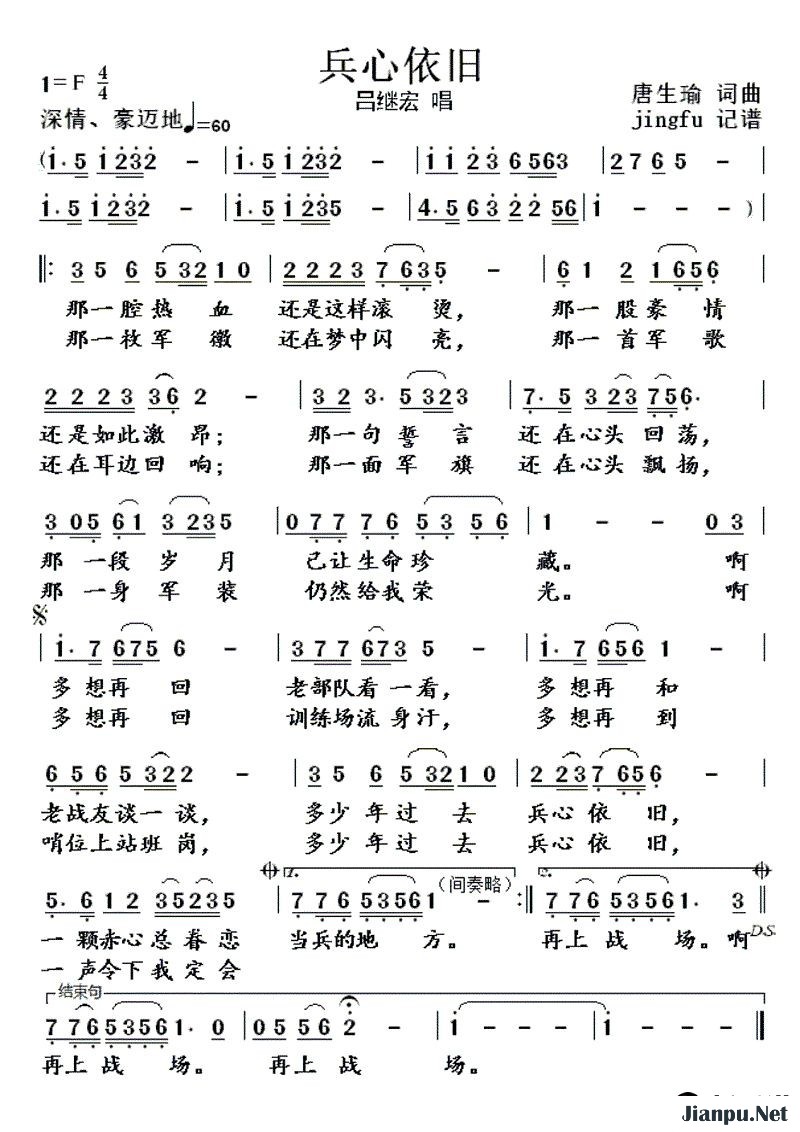 兵心依旧
1=F 4/4
吕继宏 唱
唐生瑜 词曲
深情、豪迈地♩=60
jingfu 记谱
(1·5 1232 - | 1·5 1232 - | 11 23 6563 | 2765 - |
1·5 1232 - | 1·5 1235 - | 4·5 63 22 56 | 1 - - )|
‖: 35 6 532 10 | 2223 7635 - | 61 2 1656 |
那一腔热 血 还是这样滚 烫, 那一股豪 情
那一枚军 徽 还在梦中闪 亮, 那一首军 歌
2223 36 2 - | 32 3· 5323 | 7·5 323 756· |
还是如此激 昂; 那一句誓 言 还 在心头 回 荡,
还在耳边回 响; 那一面军 旗 还 在心头 飘 扬,
3 05 61 3 235 | 077 76 53 56 | 1 - - 03 |
那 一段 岁 月 已让生命珍 藏。 啊
那 一身 军 装 仍然给我荣 光。 啊
1·7 675 6 - | 377 673 5 - | 1·7 656 1 - |
多 想再 回 老部队看 一看, 多 想再 和
多 想再 回 训练场流 身汗, 多 想再 到
656 5322 - | 35 6 532 10 | 223 7656 - |
老战友谈一 谈, 多少 年过 去 兵心 依 旧,
哨位上站班 岗, 多少 年过 去 兵心 依 旧,
1. (间奏略) 2.
5·6 12 35235 | 776 53561 - :‖ 776 53561· 3 ‖
一 颗赤心 总 眷 恋 当兵的地 方。 再上 战 场。啊 D.S.
一 声令下 我 定 会
结束句
776 53561· 0 | 055 56 2 - - | 1 - - - | 1 - - ‖
再上 战 场。 再上 战 场。
Jianpu.Net